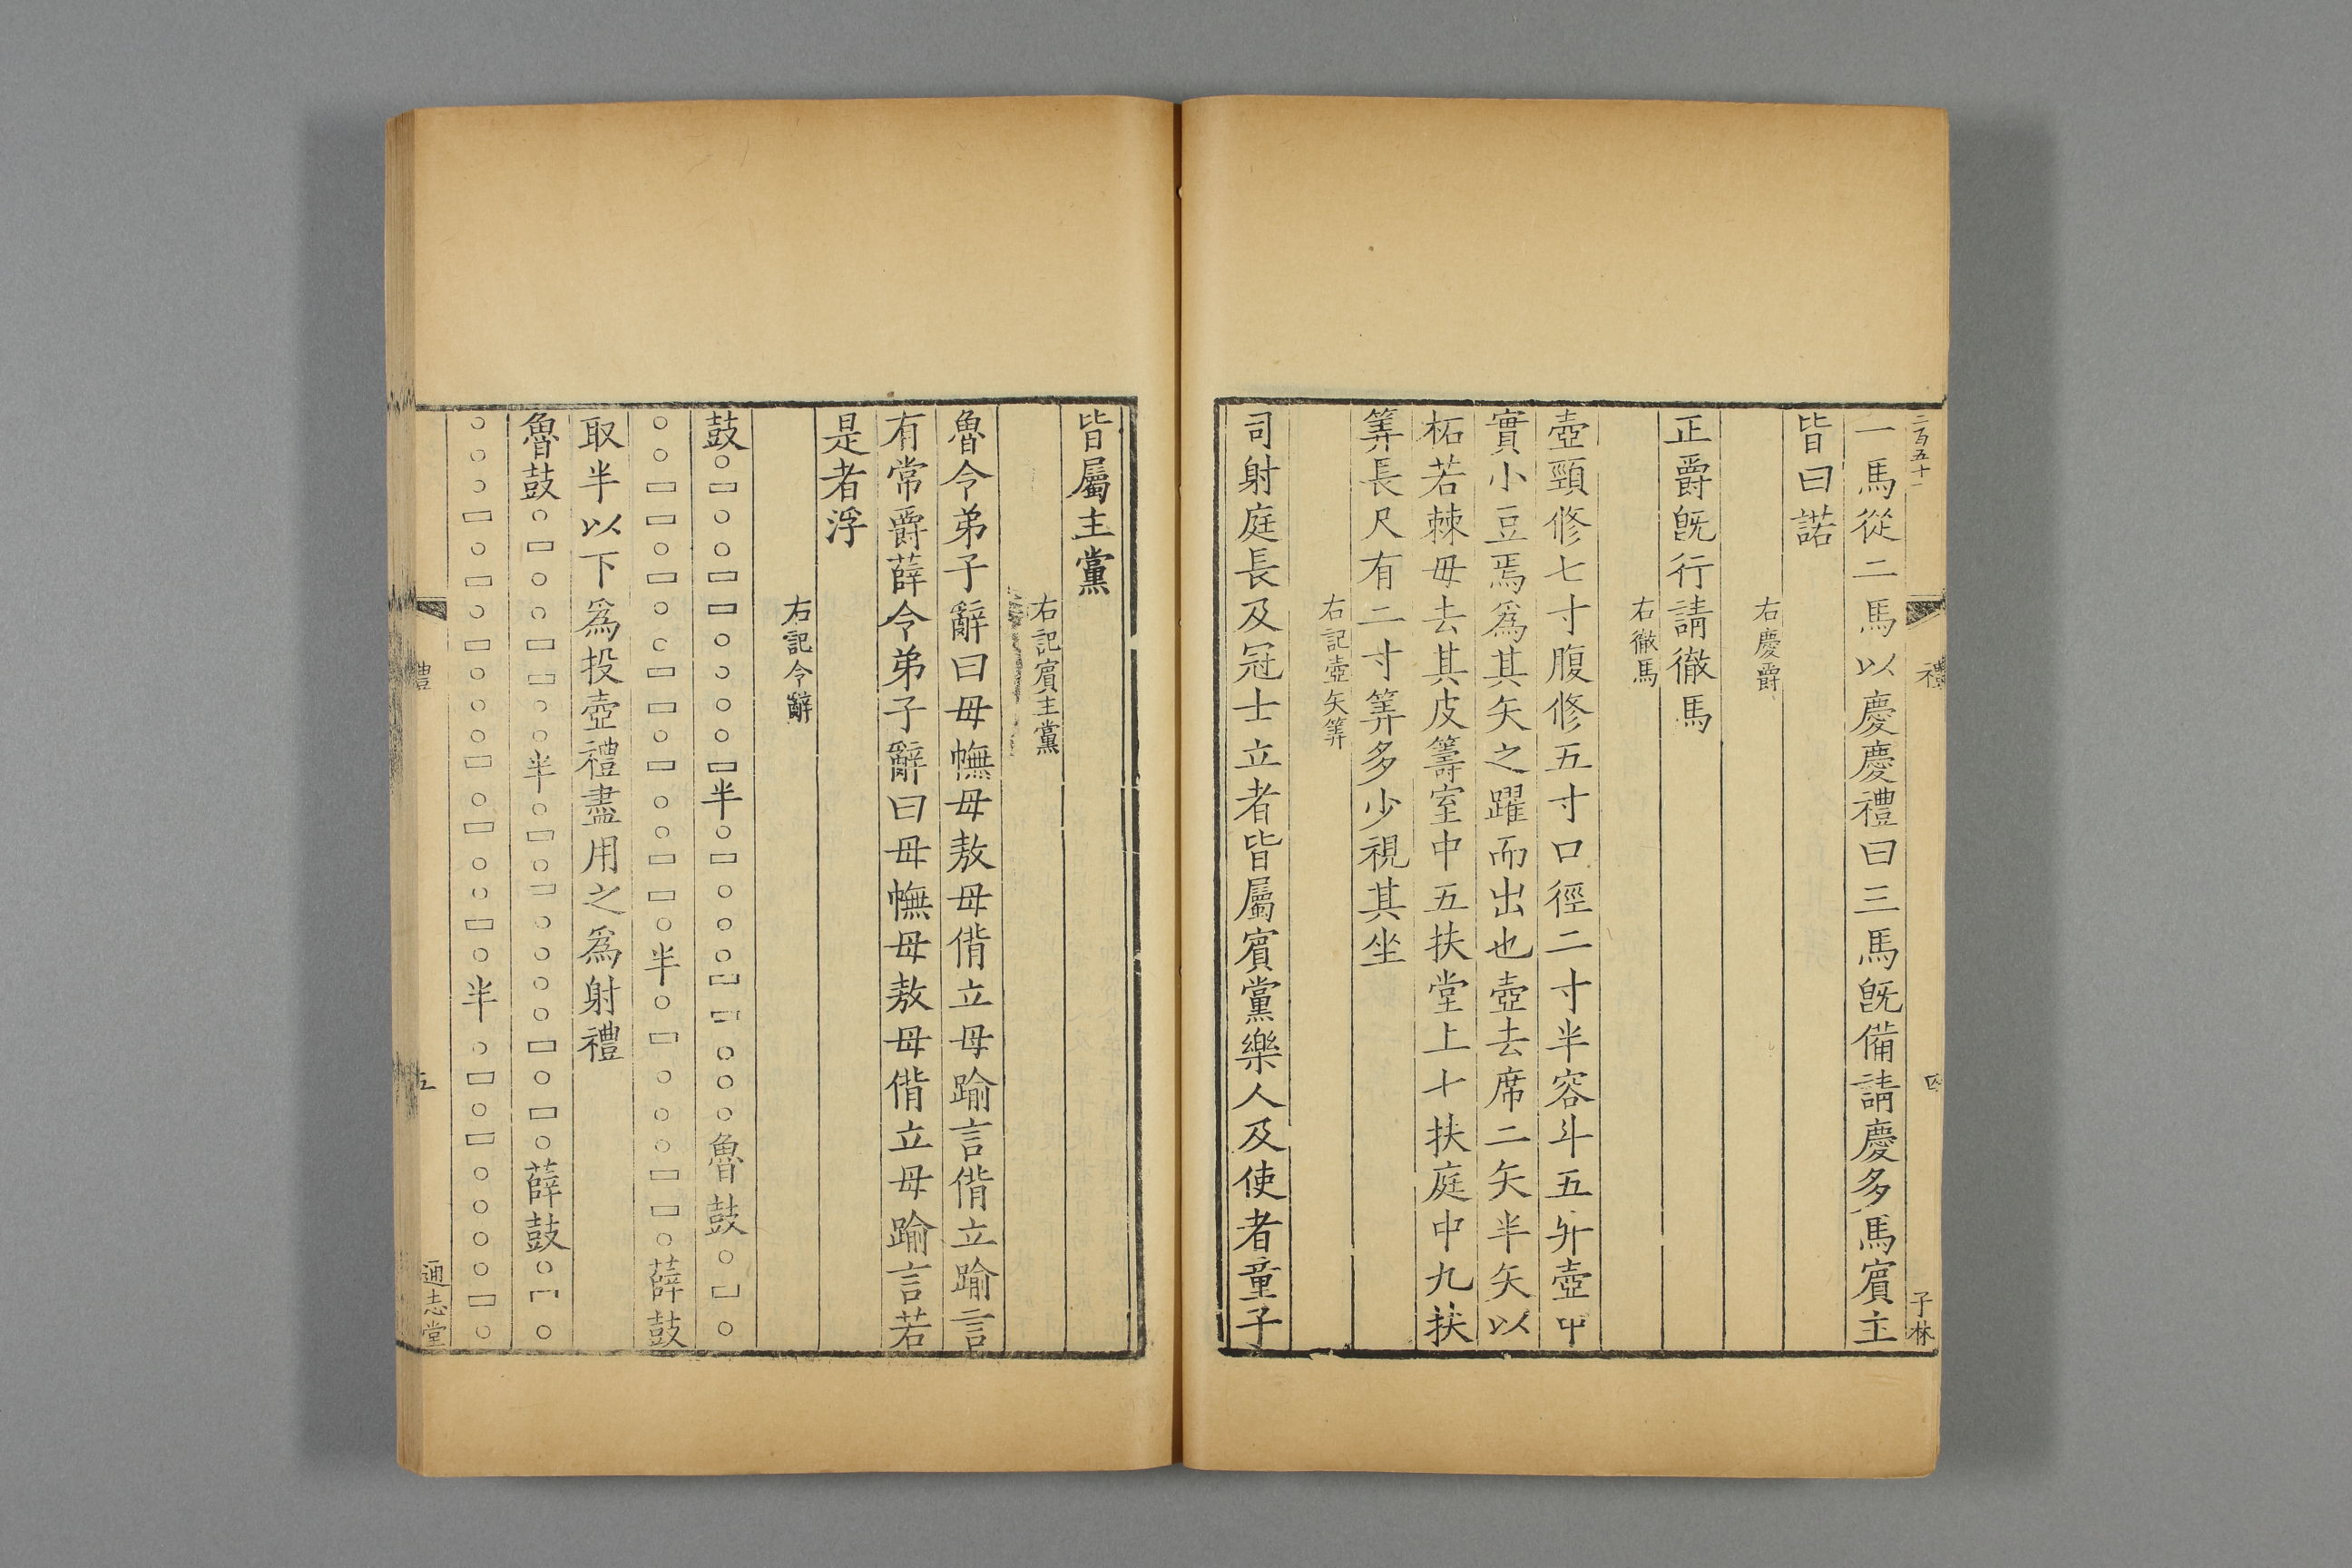 二百五十一
禮
四
子林
一馬從二馬以慶慶禮曰三馬旣備請慶多馬賓主
皆曰諾
右慶爵
正爵旣行請徹馬
右徹馬
壺頸修七寸腹修五寸口徑二寸半容斗五升壺中
實小豆焉爲其矢之躍而出也壺去席二矢半矢以
柘若棘毋去其皮籌室中五扶堂上七扶庭中九扶
筭長尺有二寸筭多少視其坐
右記壺矢筭
司射庭長及冠士立者皆屬賓黨樂人及使者童子
皆屬主黨
右記賓主黨
魯令弟子辭曰毋幠毋敖毋偝立毋踰言偝立踰言
有常爵薛令弟子辭曰毋幠毋敖毋偝立毋踰言若
是者浮
右記令辭
鼓○□○○□□○○○○□半○□○○○□□○○○魯鼓○□○
○○□□○□○○□□○□○○□□○半○□○○○□□○薛鼓
取半以下爲投壺禮盡用之爲射禮
魯鼓○□○○□□○○半○□○□○○○○□○□○薛鼓○□○
○○○□○□○□○○○□○□○○□○半○□○□○○○○□○
禮
五
通志堂